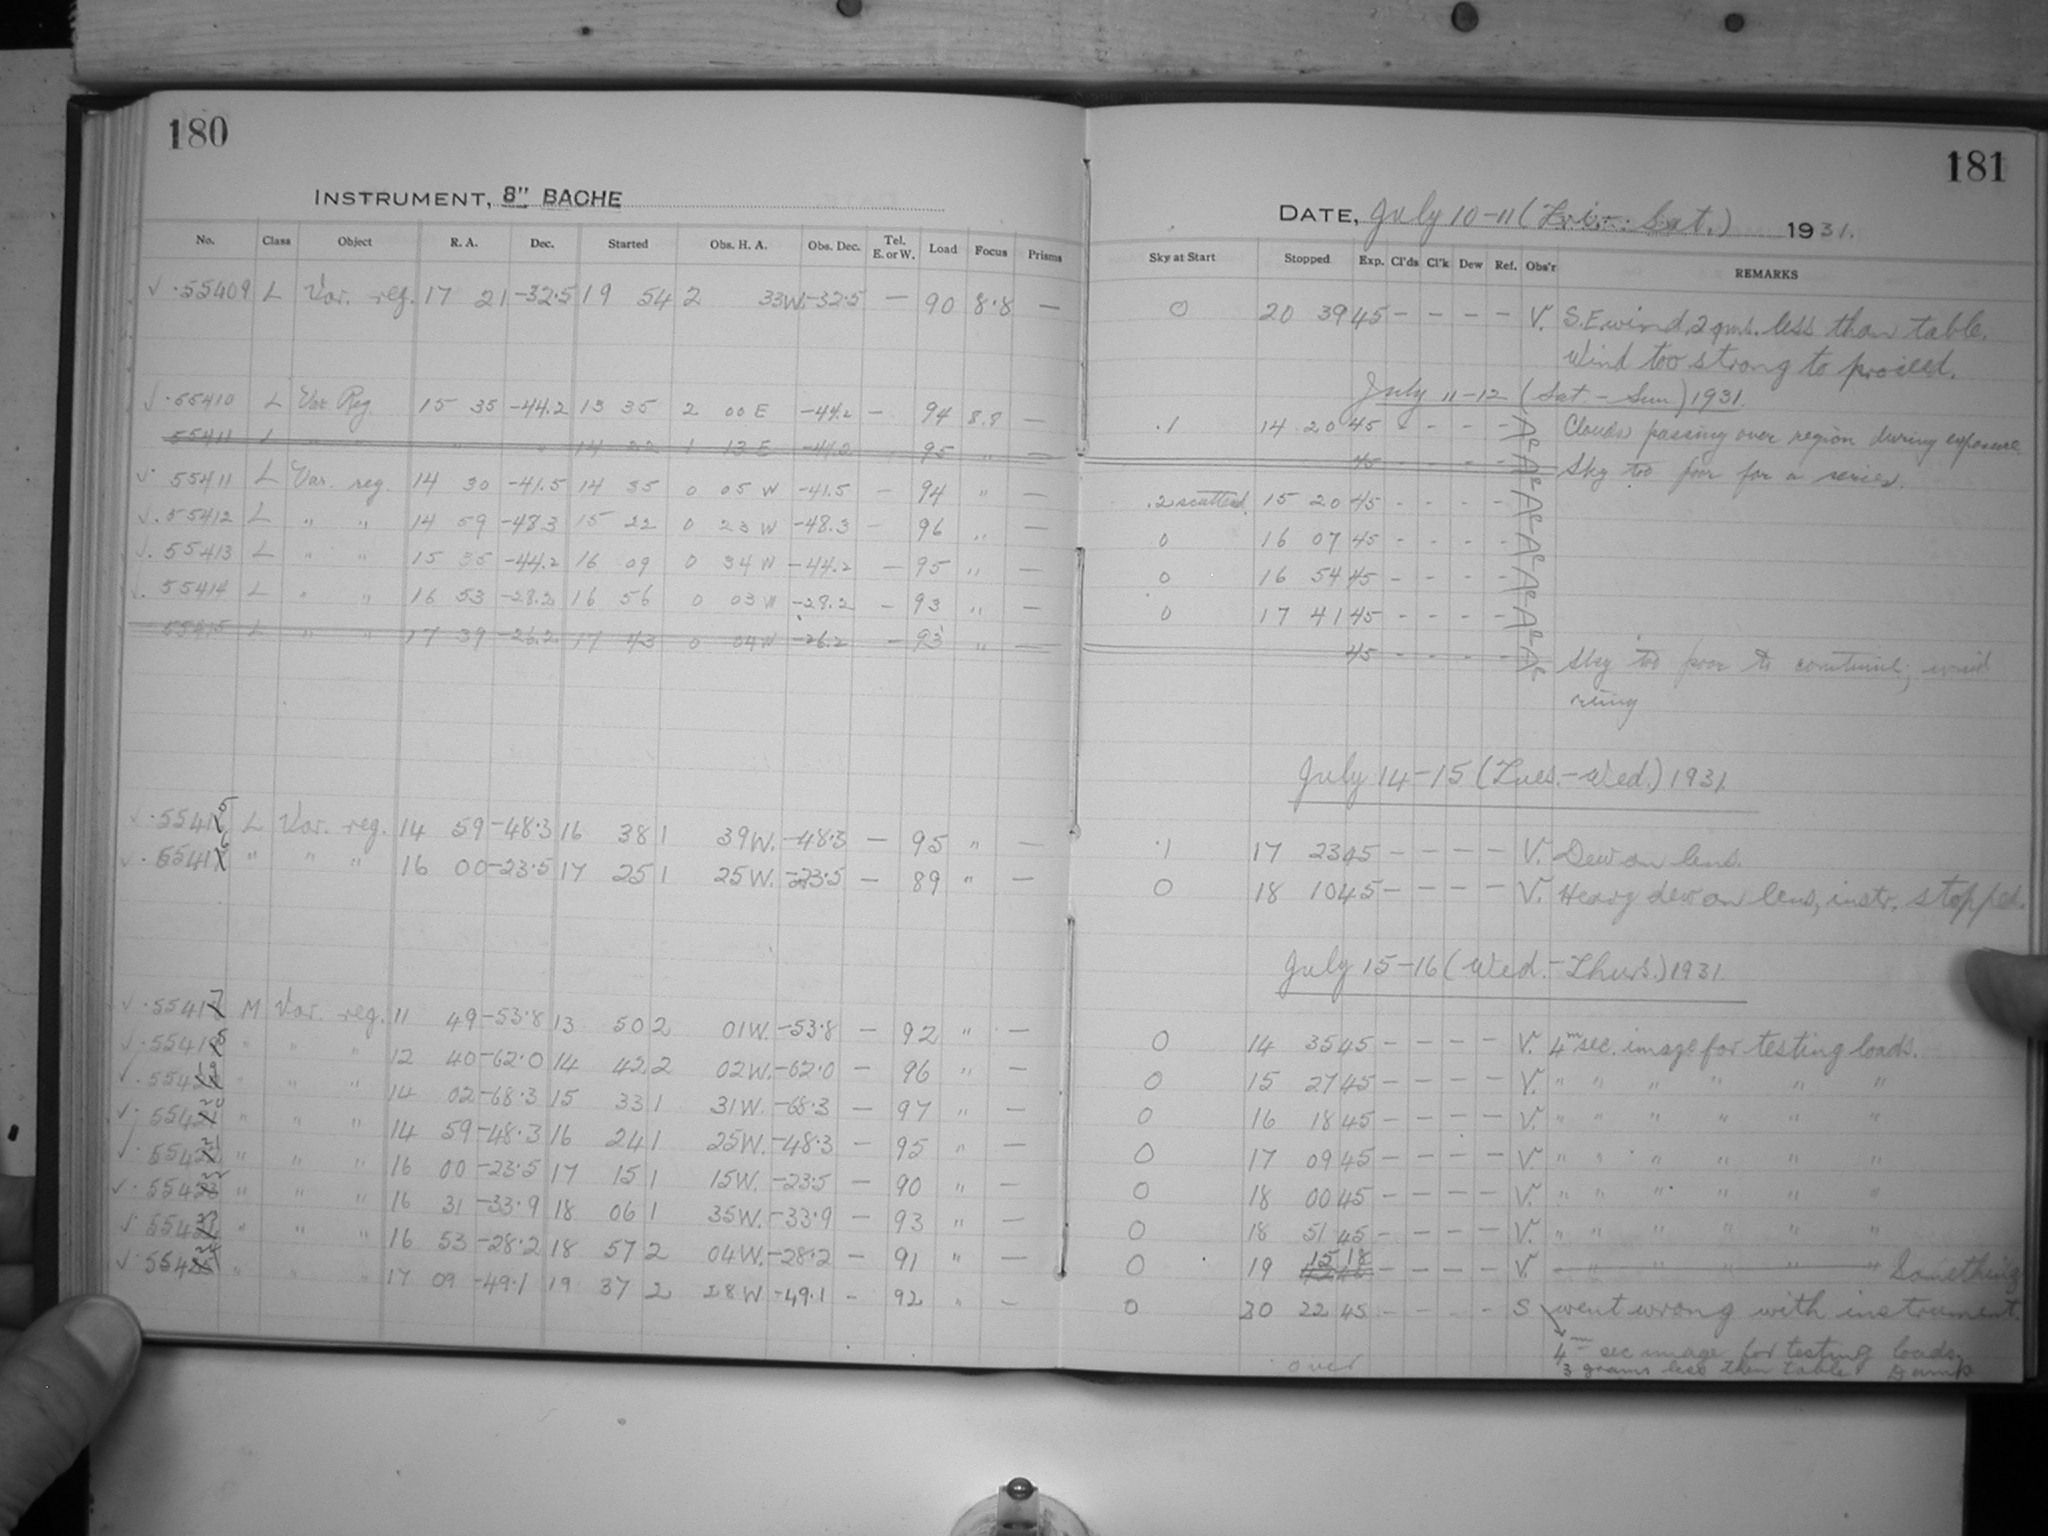 180
INSTRUMENT, 8" BACHE
No. Class Object R. A. Dec. Started Obs. H. A. Obs. Dec. Tel. E. or W. Load Focus Prisms
√ · 55409 L Var. reg. 17 21 -32.5 19 54 2 33W. -32.5 — 90 8.8 —
√ · 55410 L Var Reg. 15 35 -44.2 13 35 2 00 E -44.2 - 94 8.8 —
55411 L " " " " 14 22 1 13 E -44.2 - 95 " —
√ · 55411 L Var. reg. 14 30 -41.5 14 35 0 05 W -41.5 - 94 " —
√ . 55412 L " " 14 59 -48.3 15 22 0 23 W -48.3 - 96 " —
√ . 55413 L " " 15 35 -44.2 16 09 0 34 W -44.2 - 95 " —
√ . 55414 L " " 16 53 -28.2 16 56 0 03 W -28.2 - 93 " —
55415 L " " 17 39 -26.2 17 43 0 04 W -26.2 - 93 " —
√ · 55415 L Var. reg. 14 59 -48.3 16 38 1 39W. -48.3 — 95 " —
√ · 55416 " " " 16 00 -23.5 17 25 1 25W. -23.5 — 89 " —
√ · 55417 M Var. reg. 11 49 -53.8 13 50 2 01W. -53.8 — 92 " —
√ · 55418 " " " 12 40 -62.0 14 42 2 02W. -62.0 — 96 " —
√ · 55419 " " " 14 02 -68.3 15 33 1 31W. -68.3 — 97 " —
√ · 55420 " " " 14 59 -48.3 16 24 1 25W. -48.3 — 95 " —
√ · 55421 " " " 16 00 -23.5 17 15 1 15W. -23.5 — 90 " —
√ · 55422 " " " 16 31 -33.9 18 06 1 35W. -33.9 — 93 " —
√ · 55423 " " " 16 53 -28.2 18 57 2 04W. -28.2 — 91 " —
√ · 55424 " " " 17 09 -49.1 19 37 2 28W -49.1 - 92 " —
181
DATE, July 10-11 (Fri. - Sat.) 1931.
Sky at Start Stopped Exp. Cl'ds Cl'k Dew Ref. Obs'r REMARKS
0 20 39 45 - - - - V. S.E. wind, 2 gms. less than table.
Wind too strong to proceed.
July 11-12 (Sat. - Sun) 1931.
.1 14 20 45 - - - - Clouds passing over region during exposure
45 - - - - Sky too poor for a series.
.2 scattered. 15 20 45 - - - -
0 16 07 45 - - - -
0 16 54 45 - - - -
0 17 41 45 - - - -
45 - - - - Sky too poor to continue; wind
rising
July 14-15 (Tues. - Wed.) 1931.
.1 17 23 45 - - - - V. Dew on lens.
0 18 10 45 - - - - V. Heavy dew on lens, instr. stopped.
July 15-16 (Wed. - Thurs.) 1931.
0 14 35 45 - - - - V. 4m sec. image for testing loads.
0 15 27 45 - - - - V. " " " " " "
0 16 18 45 - - - - V. " " " " " "
0 17 09 45 - - - - V. " " " " " "
0 18 00 45 - - - - V. " " " " " "
0 18 51 45 - - - - V. " " " " " "
0 19 15 18 - - - - V. " " " " " Something
0 20 22 45 - - - - S went wrong with instrument.
4m sec image for testing loads.
3 grams less then table Damp
over